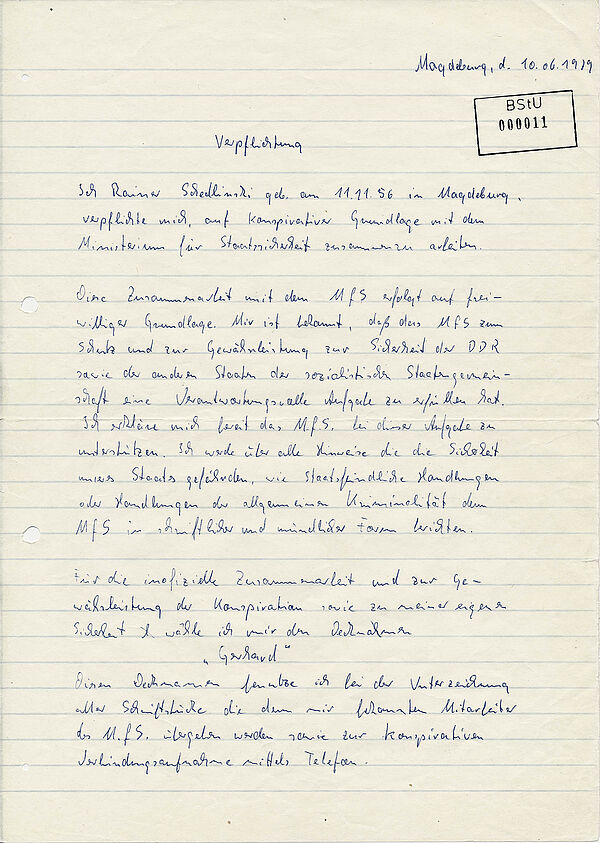 Magdeburg, d. 10.06.1979
BStU
000011
Verpflichtung
Ich Rainer Schedlinski geb. am 11.11.56 in Magdeburg,
verpflichte mich, auf konspirativer Grundlage mit dem
Ministerium für Staatssicherheit zusammenzu arbeiten.
Diese Zusammenarbeit mit dem MfS erfolgt auf frei-
williger Grundlage. Mir ist bekannt, daß das MfS zum
Schutz und zur Gewährsleistung zur Sicherheit der DDR
sowie der anderen Staaten der sozialistischen Staatengemein-
schaft eine Verantwortungsvolle Aufgabe zu erfüllen hat.
Ich erkläre mich bereit das M.f.S. bei dieser Aufgabe zu
unterstützen. Ich werde über alle Hinweise die die Sicherheit
unseres Staates gefährden, wie Staatsfeindliche Handlungen
oder Handlungen der allgemeinen Kriminalität dem
MfS in schriftlicher und mündlicher Form berichten.
Für die inofizielle Zusammenarbeit und zur Ge-
währsleistung der Konspiration sowie zu meiner eigenen
Sicherheit wähle ich mir den Decknahmen
„Gerhard"
Diesen Decknamen benutze ich bei der Unterzeichnung
aller Schriftstücke die dem mir bekannten Mitarbeiter
des M.f.S. übergeben werden sowie zur konspirativen
Verbindungsaufnahme mittels Telefon.